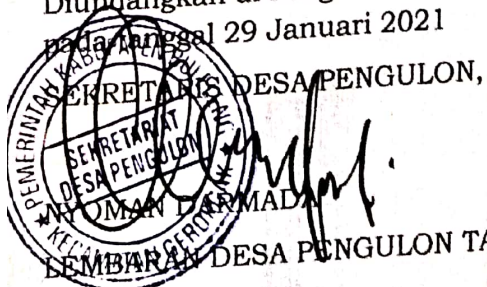 Diundangkan di
pada tanggal 29 Januari 2021
SEKRETARIS DESA PENGULON,
PEMERINTAH KABUPATEN BULELENG
SEKRETARIAT
DESA PENGULON
KECAMATAN GEROKGAK
NYOMAN DARMADA
LEMBARAN DESA PENGULON TA